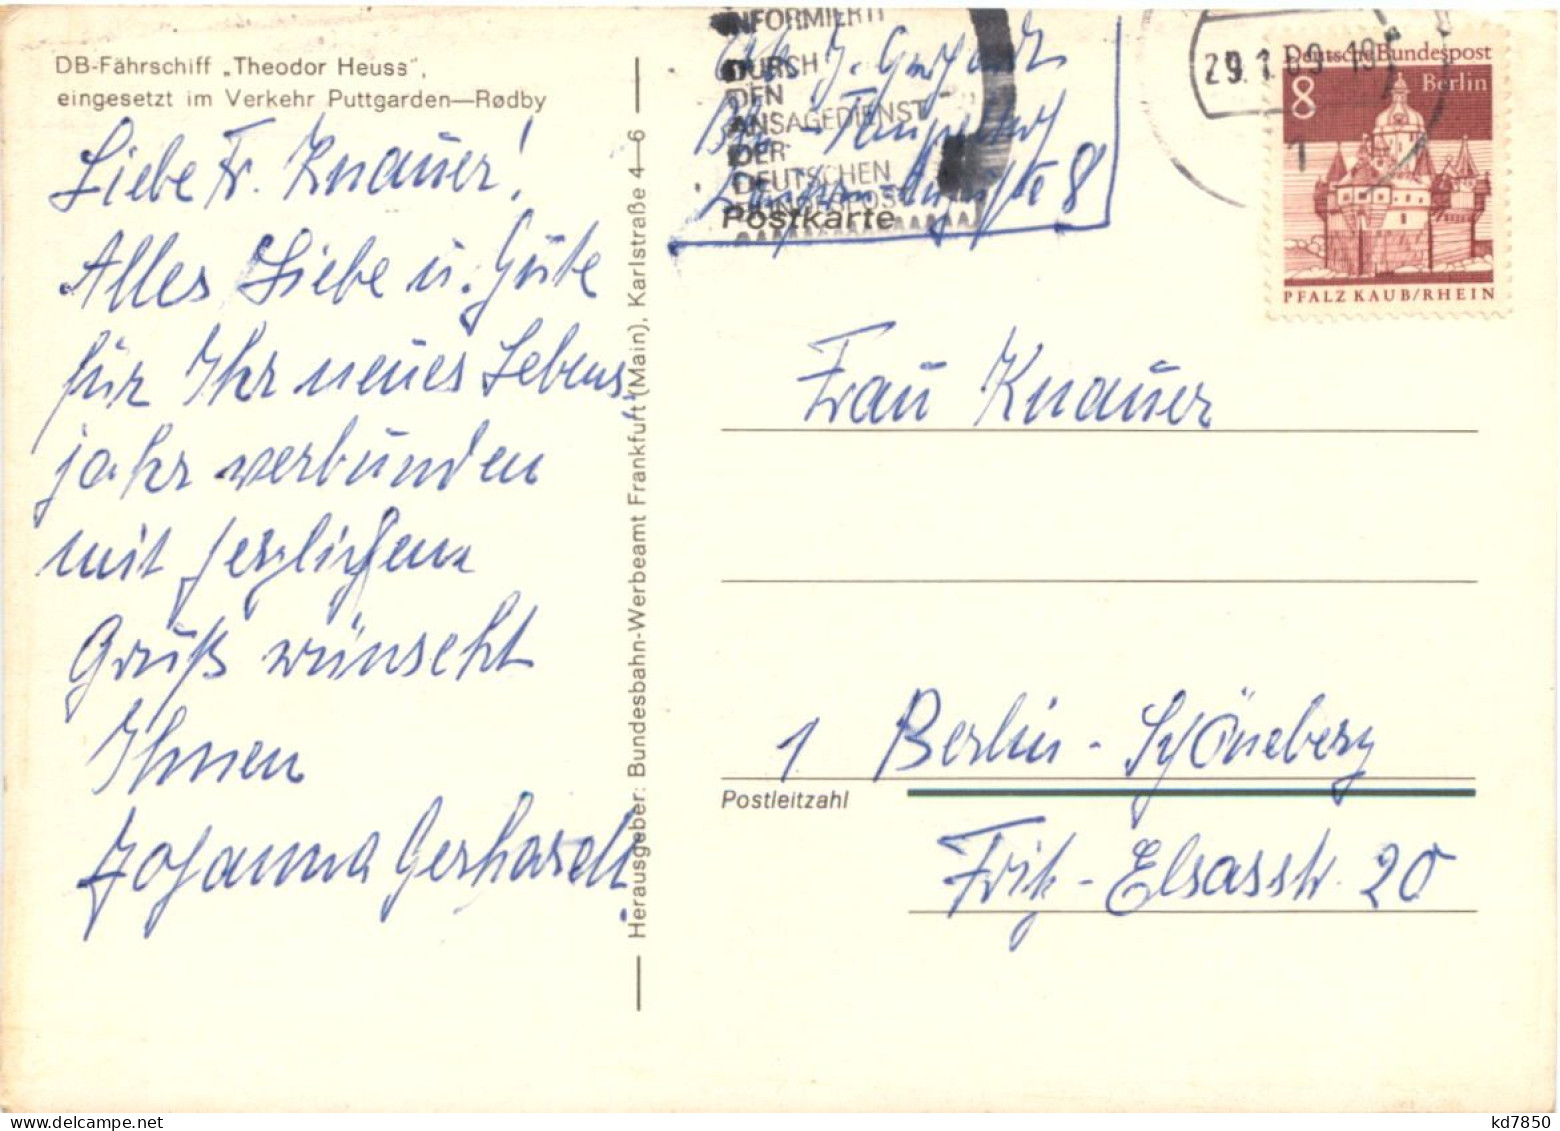 DB-Fährschiff „Theodor Heuss“,
eingesetzt im Verkehr Puttgarden—Rødby
Liebe Fr. Knauer!
Alles Liebe u. Gute
für Ihr neues Lebens-
jahr verbunden
mit herzlichem
Gruß wünscht
Ihnen
Johanna Gerhardt.
Herausgeber: Bundesbahn-Werbeamt Frankfurt (Main), Karlstraße 4—6
INFORMIERT
DURCH
DEN
ANSAGEDIENST
DER
DEUTSCHEN
Postkarte
29.1.69-19
1
Deutsche Bundespost
Berlin
8
PFALZ KAUB/RHEIN
Frau Knauer
1 Berlin - Schöneberg
Postleitzahl
Fritz-Elsasstr. 20
kd7850